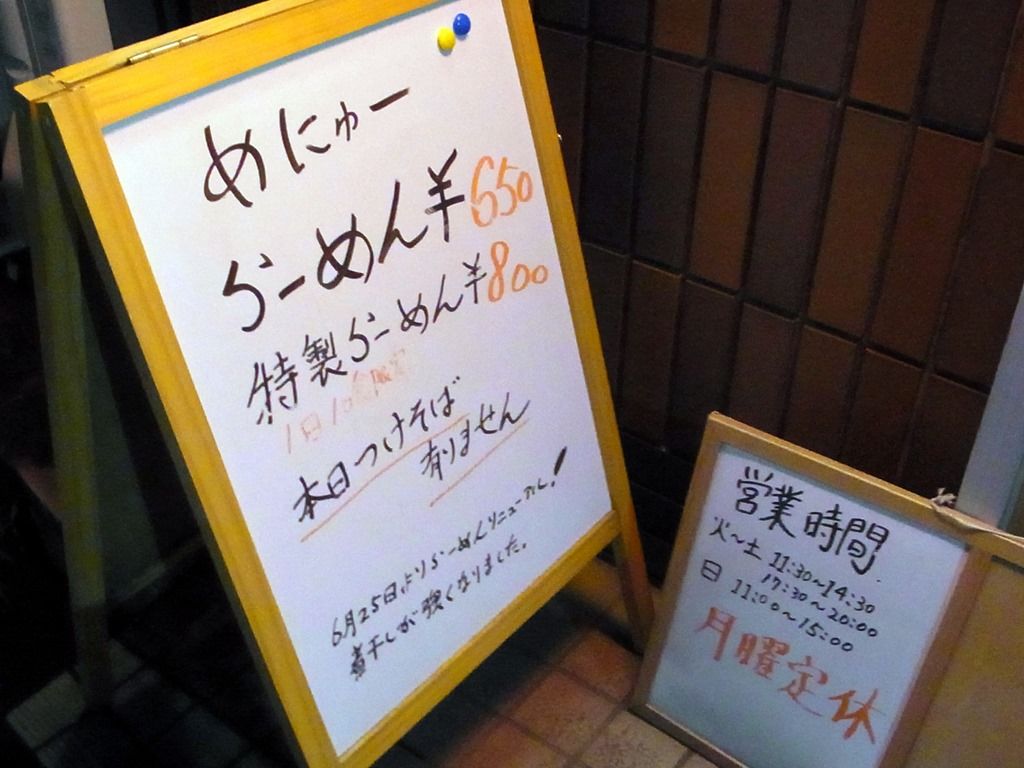 めにゅー
らーめん¥650
特製らーめん¥800
1日10食限定
本日つけそば
有りません
6月25日よりらーめんリニューアル!
煮干しが強くなりました。
営業時間
火〜土 11:30〜14:30
17:30〜20:00
日 11:00〜15:00
月曜定休